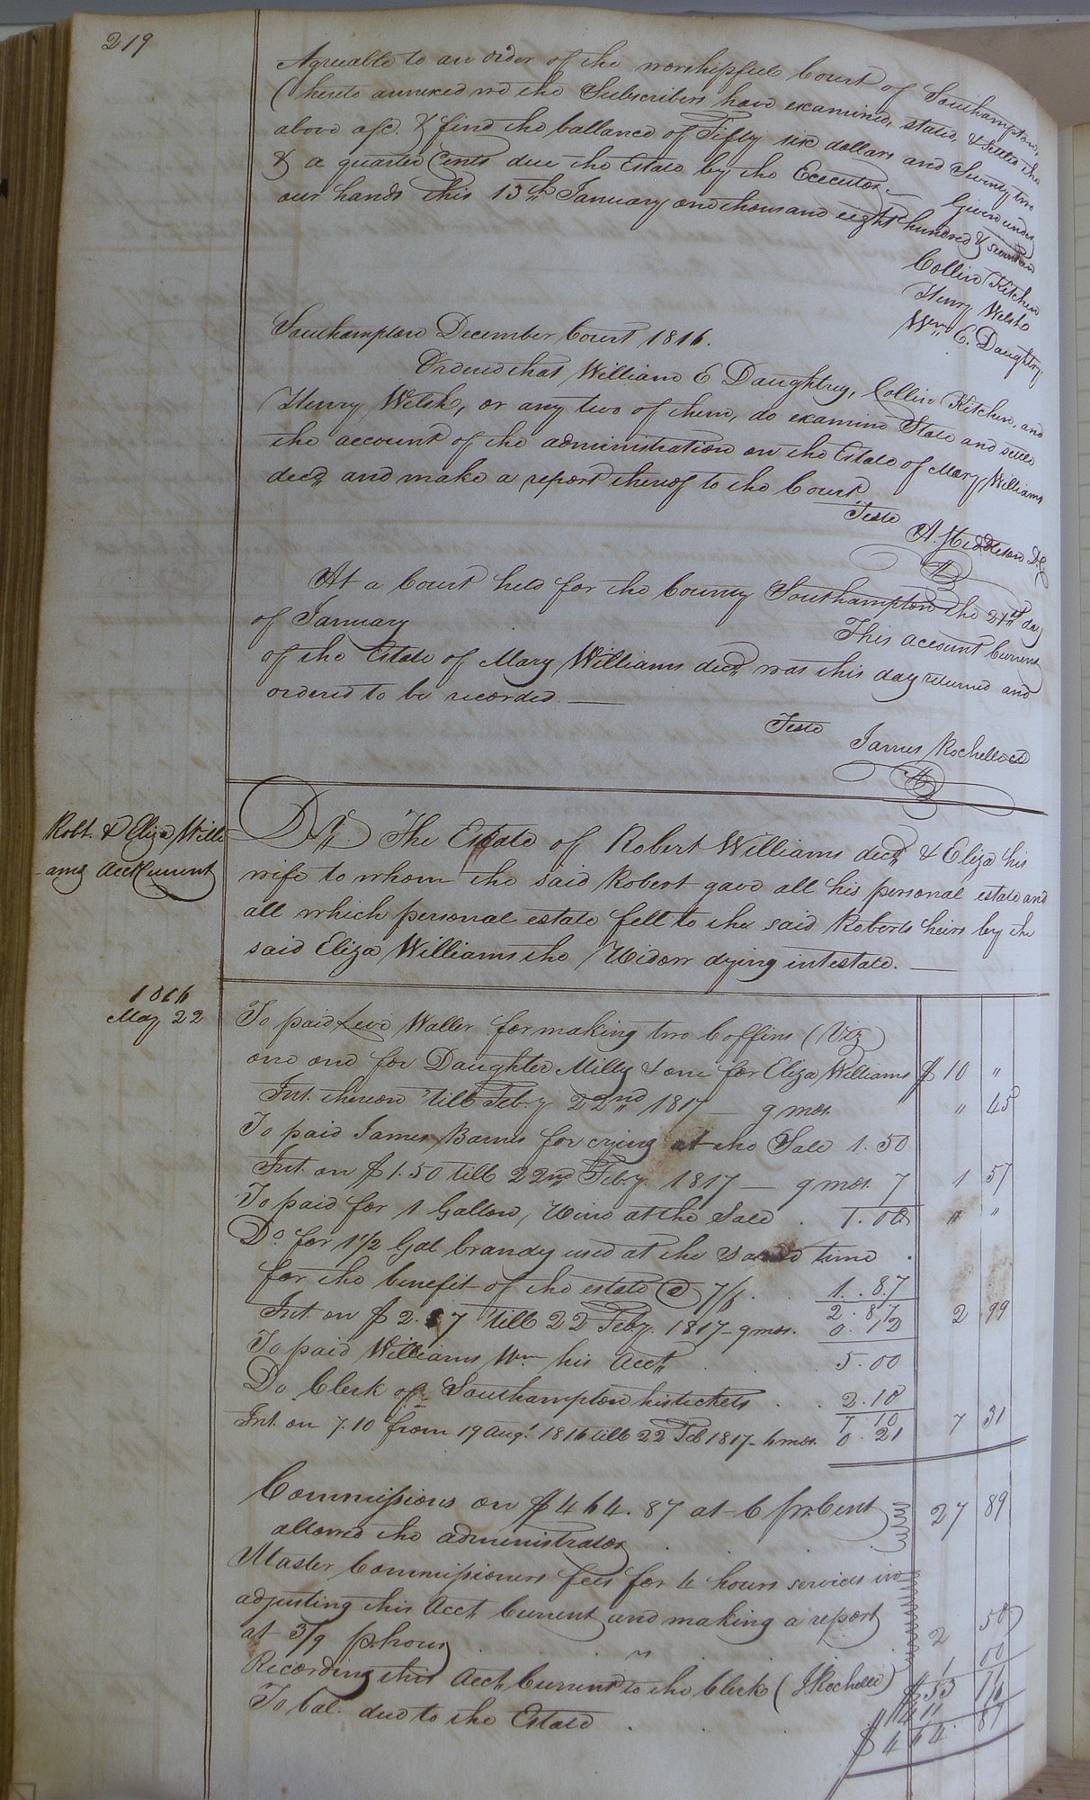 219
Agreeable to an order of the worshipfull Court of Southampton,
(hereto annexed we the Subscribers have examined, stated, & settled the
above a/c. & find the ballance of Fifty six dollars and Seventy two
& a quarter Cents due the Estate by the Executor. — Given under
our hands this 13th January one thousand eight hundred & seventeen
Collin Kitchen
Henry Welsh
Wm E. Daughtry
Southampton December Court 1816.
Ordered that William E Daughtrey, Collin Kitchen, and
Henry Welsh, or any two of them, do examine State and settle
the account of the administration on the Estate of Mary Williams
decd and make a report thereof to the Court
Teste
A. Middleton D.C.
At a Court held for the County Southampton the 21st day
of January
This account Current
of the Estate of Mary Williams decd was this day returned and
ordered to be recorded. —
Teste
James Rochelle Ct
Robt. & Eliza Willi
-ams Acct Current
Dr. The Estate of Robert Williams decd & Eliza his
wife to whom the said Robert gave all his personal estate and
all which personal estate fell to the said Roberts heirs by the
said Eliza Williams the Widow dying intestate. —
1816
May 22
To paid Levi Waller for making two Coffins (Viz
one one for Daughter Milly & one for Eliza Williams $ 10 "
Int. thereon till Feby 22nd 1817 — 9 mos. " 45
To paid James Barnes for crying at the Sale 1.50
Int. on $1.50 till 22nd Feby. 1817 — 9 mos. 7 1 57
To paid for 1 Gallon, Wine at the Sale . 1.00 " "
Do for 1 1/2 Gal brandy used at the same time .
for the benefit of the estate @ 7/6 . . 1..87
2.87 2 99
Int. on $2.87 till 22 Feby. 1817 - 9 mos. 0.12
To paid Williams Wm his Acct, . . 5.00
Do Clerk of Southampton his tickets . . 2.10
7 10 7 31
Int. on 7.10 from 19 Augt. 1816 till 22 Feb 1817 - 6 mos. 0.21
Commissions on $464.87 at 6 pr. Cent 27 89
allowed the administrator . . .
Master Commissioners fees for 4 hours services in
adjusting this Acct Current and making a report
at 3/9 p. hour . . . 2 50
Recording this Acct Current to the Clerk (J Rochelle) 1 00
To bal. due to the Estate . . .
$ 464. 87